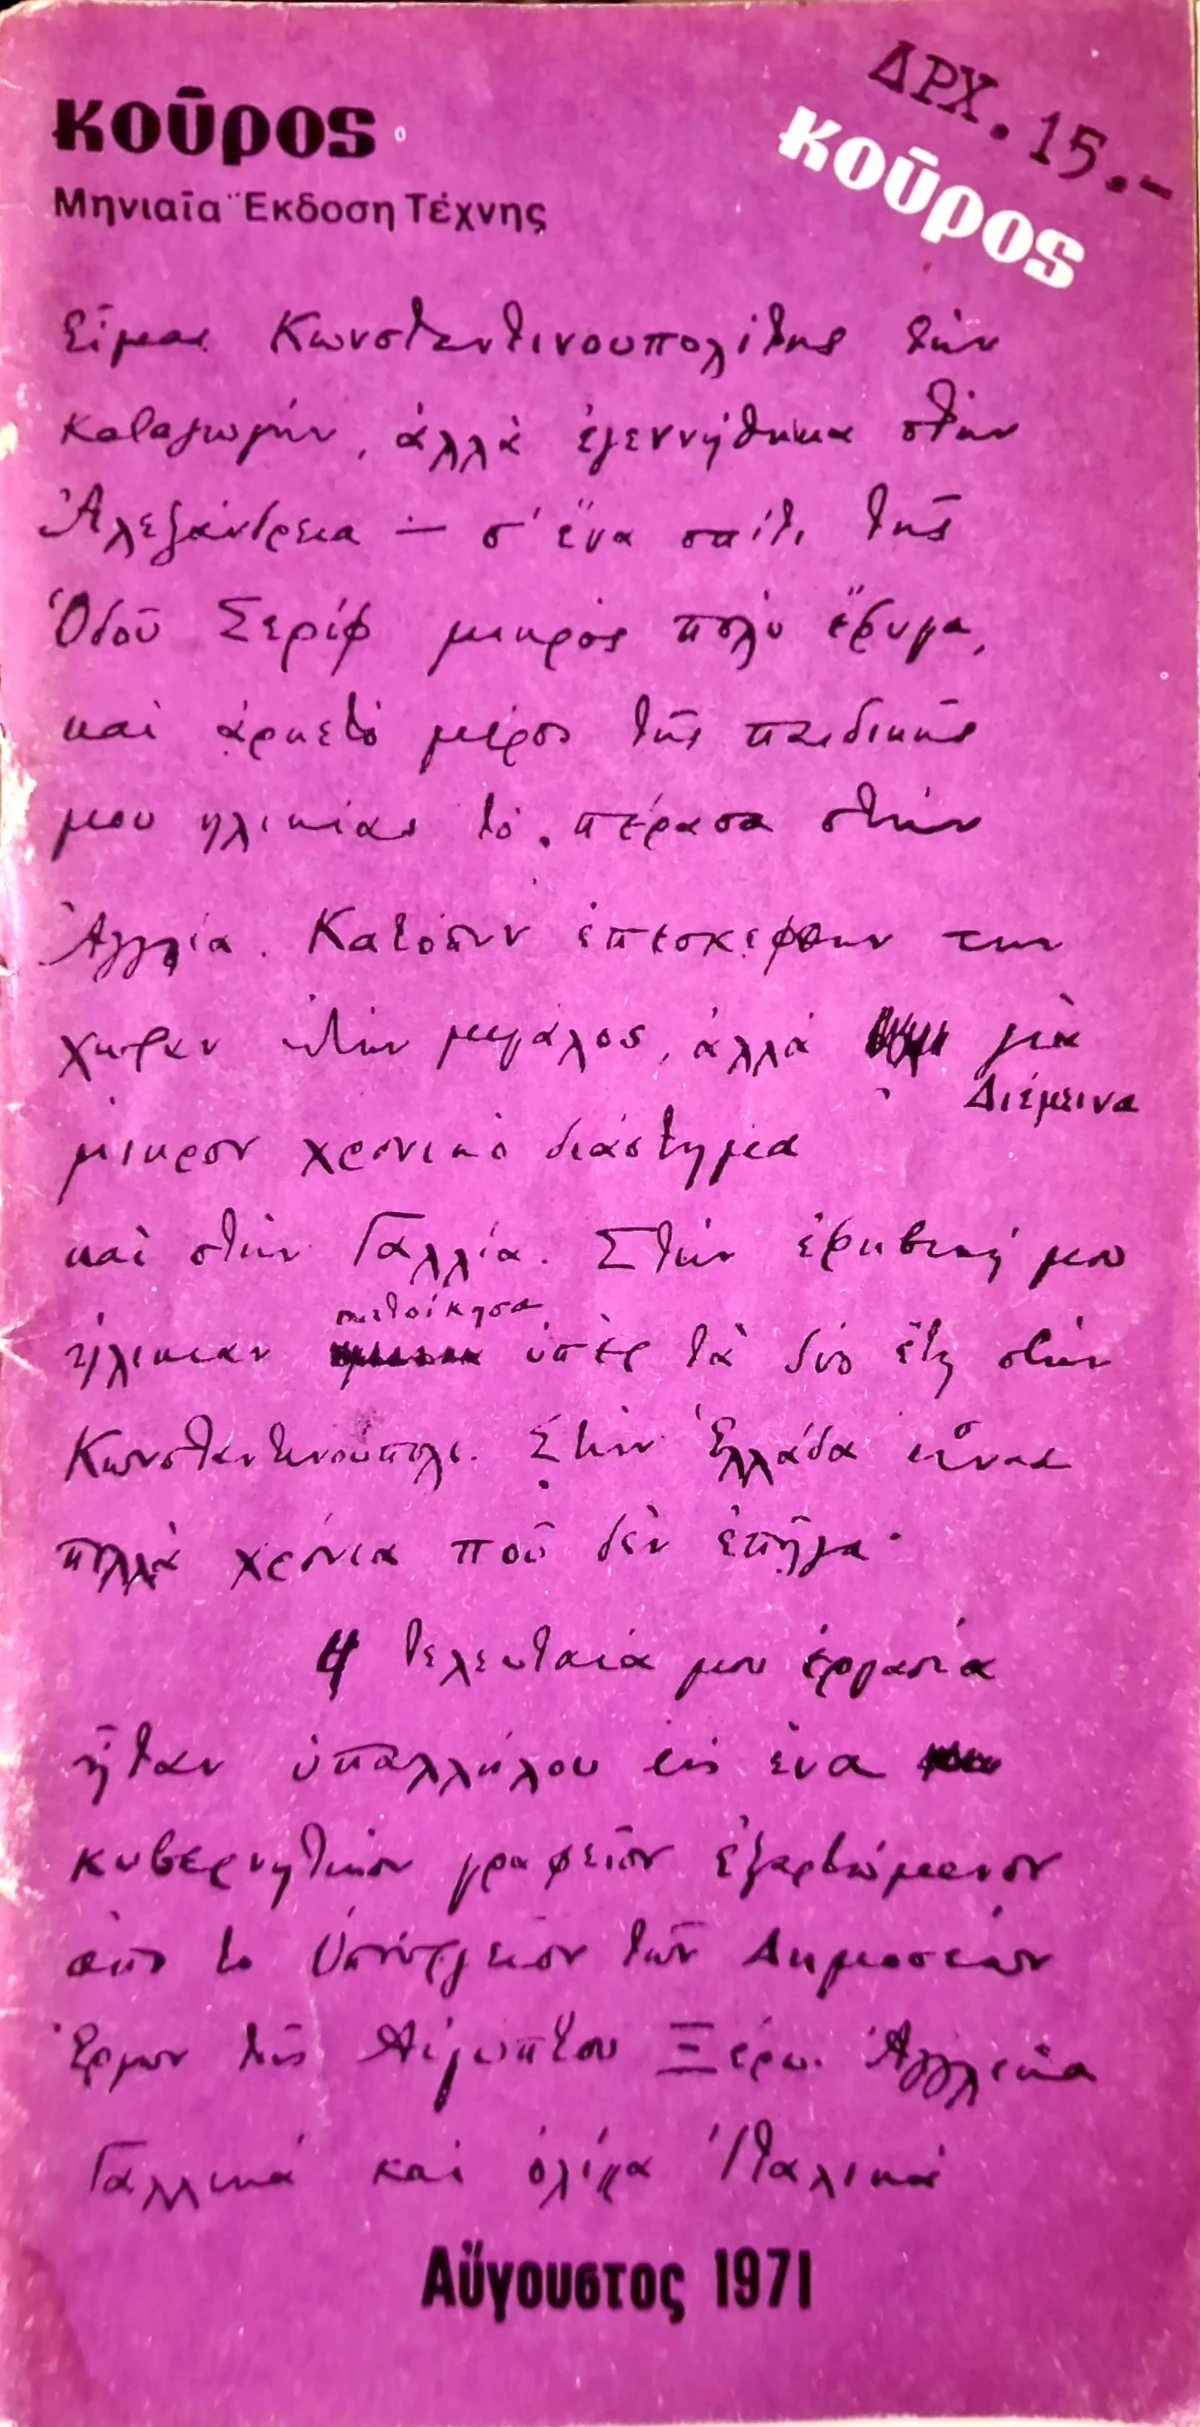 κοῦρος
Μηνιαῖα Ἔκδοση Τέχνης
ΔΡΧ. 15.-
κοῦρος
Εἶμαι Κωνσταντινουπολίτης τὴν
καταγωγήν, ἀλλὰ ἐγεννήθηκα στὴν
Ἀλεξάνδρεια — σ' ἕνα σπίτι τῆς
Ὁδοῦ Σερίφ μικρὸς πολὺ ἔφυγα,
καὶ ἀρκετὸ μέρος τῆς παιδικῆς
μου ηλικίας τὸ πέρασα στὴν
Ἀγγλία. Κατόπιν ἐπεσκεφθην την
χώραν αὐτὴν μεγάλος, ἀλλὰ γιὰ
μικρον χρονικὸ διάστημα
Διέμεινα
καὶ στὴν Γαλλία. Στὴν ἐφηβική μου
ἡλικιαν κατοίκησα ὑπὲρ τὰ δυο ἔτη στὴν
Κωνσταντινούπολι. Στὴν Ἑλλάδα εἶναι
πολλὰ χρόνια ποῦ δὲν ἐπῆγα.
Η τελευταία μου ἐργασία
ἦταν ὑπαλλήλου εἰς ἕνα
κυβερνητικὸν γραφεῖον ἐξαρτώμενον
ἀπὸ το Ὑπουργεῖον τῶν Δημοσίων
Ἔργων τῆς Αἰγύπτου Ξέρω Ἀγγλικὰ
Γαλλικά και ὀλίγα Ἰταλικά
Αὔγουστος 1971